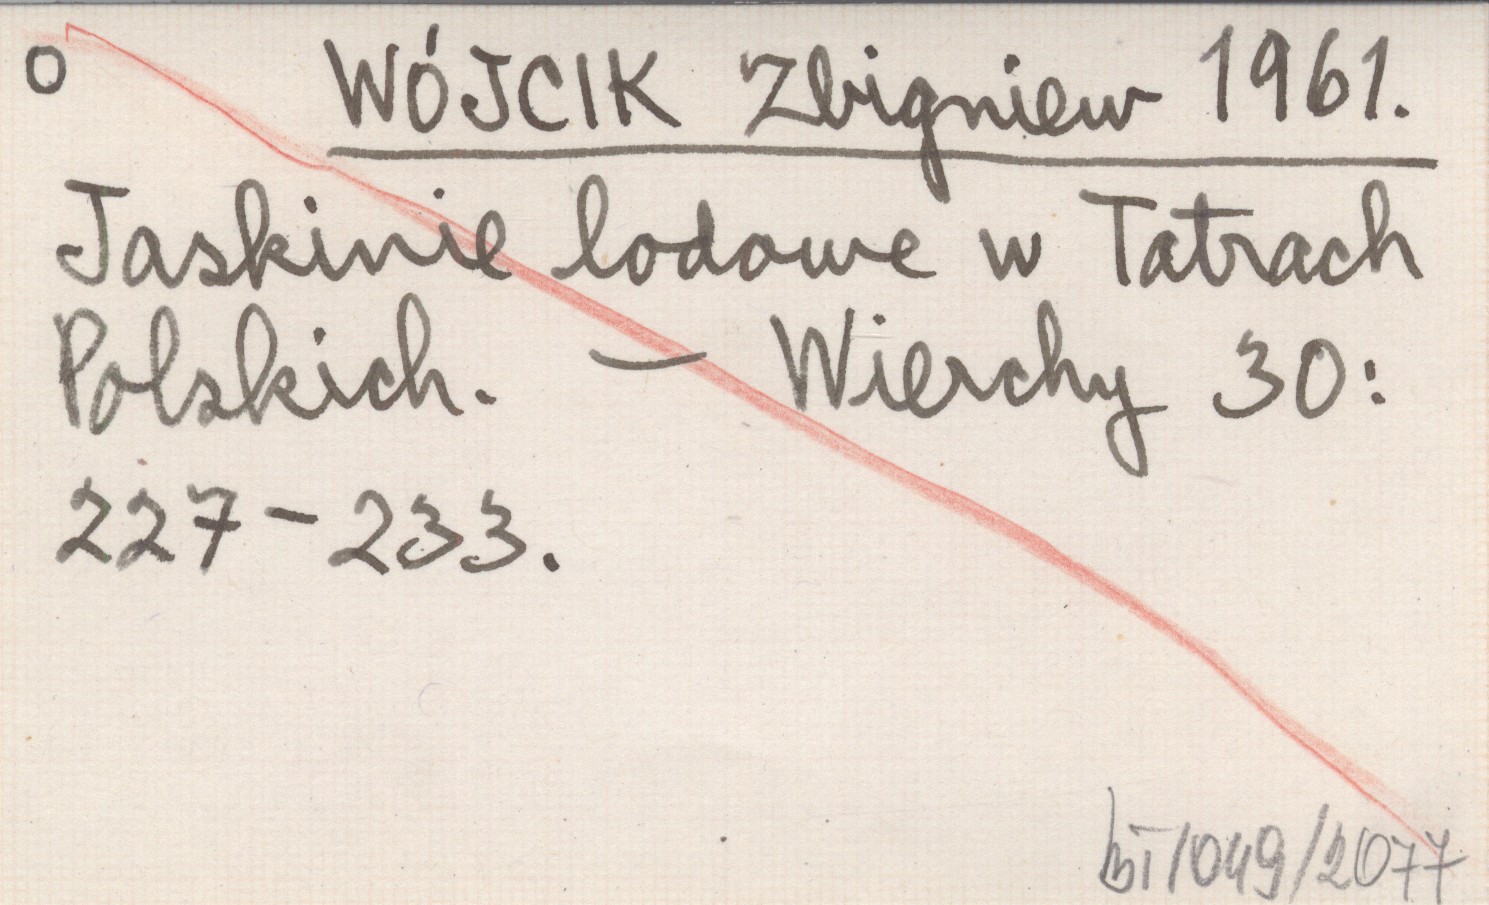 O WÓJCIK Zbigniew 1961.
Jaskinie lodowe w Tatrach
Polskich. — Wierchy 30:
227-233.
bT/049/2077